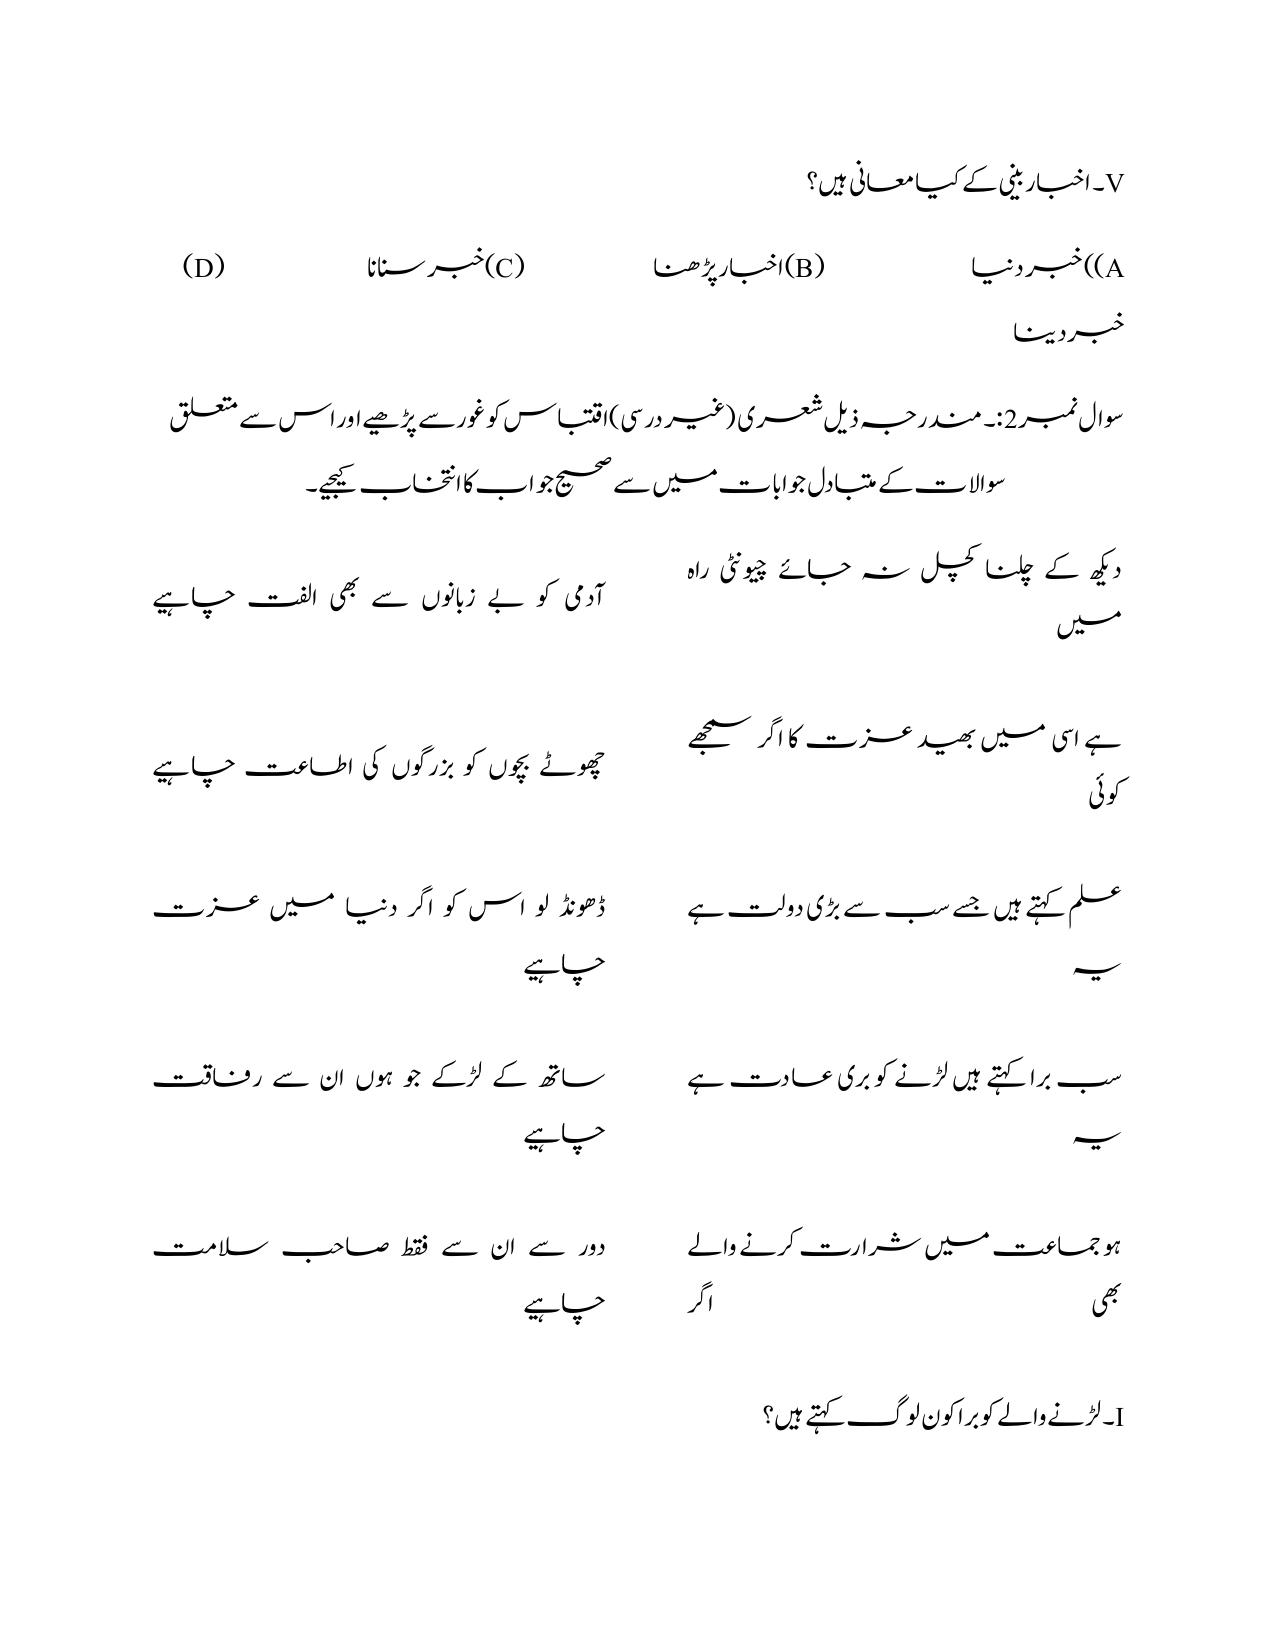 V۔اخبار بینی کے کیا معانی ہیں؟
A))خبر دنیا (B)اخبار پڑھنا (C)خبر سنانا (D)
خبر دینا
سوال نمبر2:۔مندرجہ ذیل شعری(غیر درسی)اقتباس کو غور سے پڑھیے اور اس سے متعلق
سوالات کے متبادل جوابات میں سے صحیح جواب کا انتخاب کیجیے۔
دیکھ کے چلنا کچل نہ جائے چیونٹی راہ
میں
آدمی کو بے زبانوں سے بھی الفت چاہیے
ہے اسی میں بھید عزت کا اگر سمجھے
کوئی
چھوٹے بچوں کو بزرگوں کی اطاعت چاہیے
علم کہتے ہیں جسے سب سے بڑی دولت ہے
یہ
ڈھونڈ لو اس کو اگر دنیا میں عزت
چاہیے
سب برا کہتے ہیں لڑنے کو بری عادت ہے
یہ
ساتھ کے لڑکے جو ہوں ان سے رفاقت
چاہیے
ہو جماعت میں شرارت کرنے والے
بھی اگر
دور سے ان سے فقط صاحب سلامت
چاہیے
I۔لڑنے والے کو برا کون لوگ کہتے ہیں؟